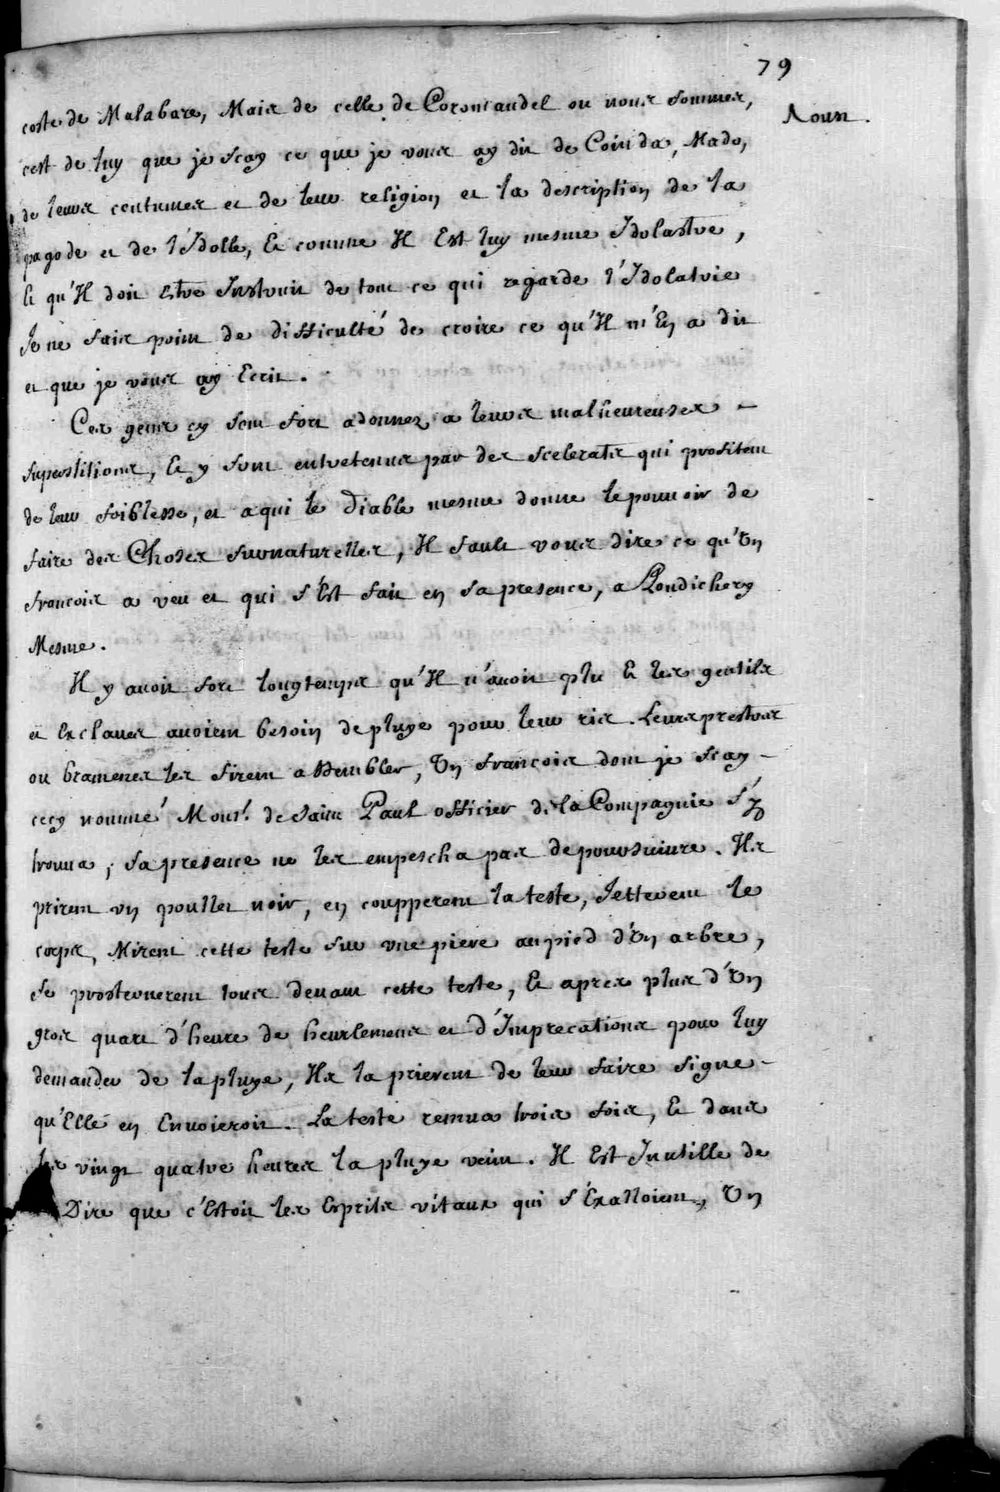 79
Nouv.
coste de Malabare, Mais de celle de Coromandel ou nous sommes,
c'est de luy que je scay ce que je vous ay dit de Coinda, Mado,
de leurs coutumes et de leur religion et la description de la
pagode et de l'Idolle, Et comme Il Est luy mesme Idolastre,
Et qu'Il doit Estre Instruit de tout ce qui regarde l'Idolatrie
Je ne fais point de difficulté de croire ce qu'Il m'En a dit
et que je vous ay Ecrit.
Ces gens cy sont fort adonnez a leurs malheureuses
superstitions, Et y sont entretenus par des scelerats qui profitent
de leur foiblesse, et a qui le Diable mesme donne le pouvoir de
faire des Choses surnaturelles, Il fault vous dire ce qu'Un
francois a veu et qui s'Est fait en sa presence, a Pondichery
Mesme.
Il y avoit fort longtemps qu'Il n'avoit plu Et les gentils
et Esclaves avoient besoin de pluye pour leur ris. Leurs prestres
ou bramenes les firent assembler, Un francois dont je scay
cecy nommé Monsr. de Saint Paul officier de la Compagnie s'y
trouva, sa presence ne les empescha pas de poursuivre. Ils
prirent un poullet noir, en coupperent la teste, Jetterent le
corps, Mirent cette teste sur une piere au pied d'Un arbre,
se prosternerent tous devant cette teste, Et apres plus d'Un
gros quart d'heure de heurlemens et d'Imprecations pour luy
demander de la pluye, Ils la prierent de leur faire signe
qu'Elle en Envoieroit. La teste remua trois fois, Et dans
les vingt quatre heures la pluye vint. Il Est Inutille de
Dire que c'Estoit les Esprits vitaux qui s'Exalloient, Un